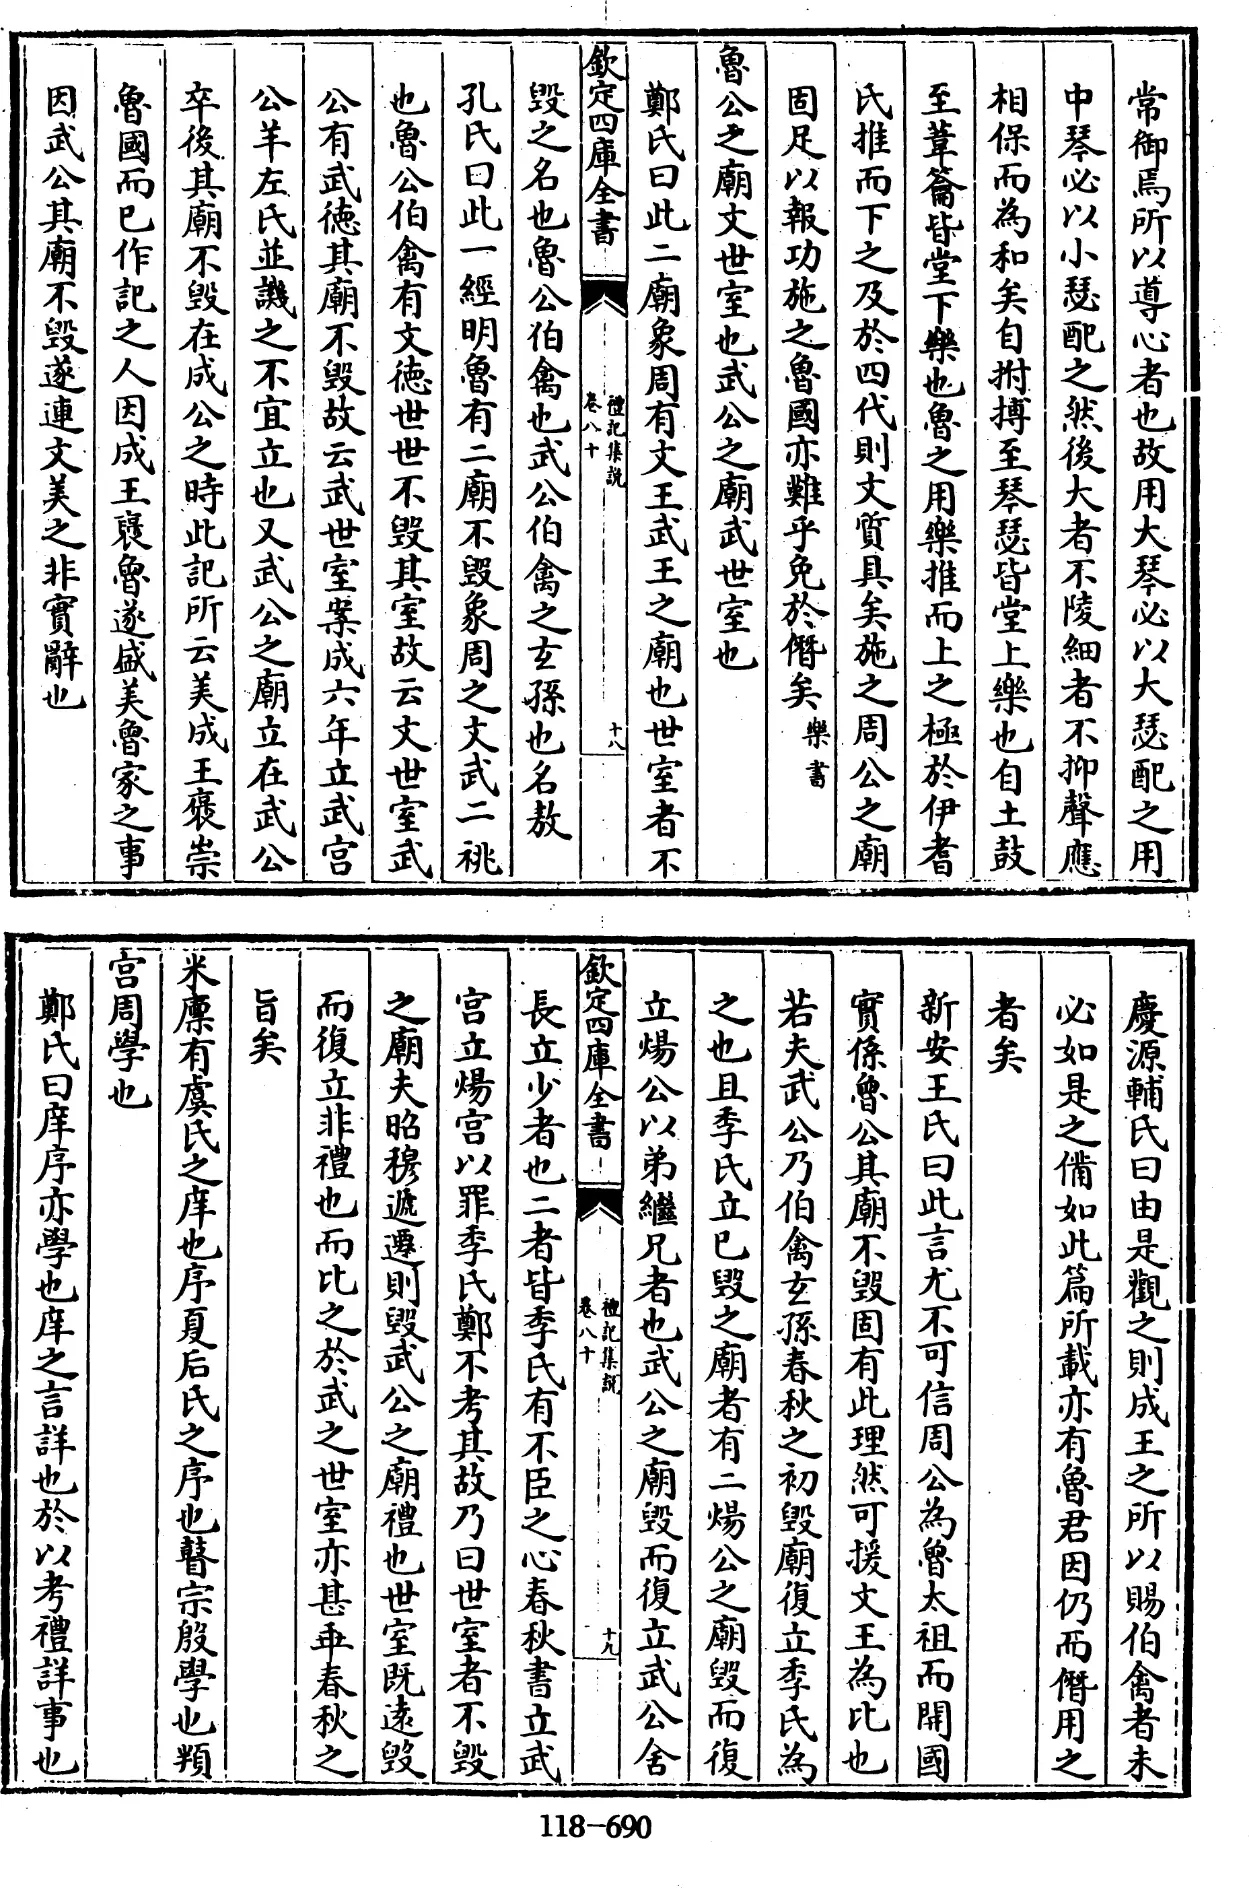 常御焉所以導心者也故用大琴必以大瑟配之用
中琴必以小瑟配之然後大者不陵細者不抑聲應
相保而為和矣自拊搏至琴瑟皆堂上樂也自土鼓
至葦籥皆堂下樂也魯之用樂推而上之極於伊耆
氏推而下之及於四代則文質具矣施之周公之廟
固足以報功施之魯國亦難乎免於僭矣樂書
魯公之廟文世室也武公之廟武世室也
鄭氏曰此二廟象周有文王武王之廟也世室者不
欽定四庫全書
禮記集說
卷八十
十八
毀之名也魯公伯禽也武公伯禽之玄孫也名敖
孔氏曰此一經明魯有二廟不毀象周之文武二祧
也魯公伯禽有文德世世不毀其室故云文世室武
公有武德其廟不毀故云武世室案成六年立武宮
公羊左氏並譏之不宜立也又武公之廟立在武公
卒後其廟不毀在成公之時此記所云美成王襃崇
魯國而已作記之人因成王襃魯遂盛美魯家之事
因武公其廟不毀遂連文美之非實辭也
慶源輔氏曰由是觀之則成王之所以賜伯禽者未
必如是之備如此篇所載亦有魯君因仍而僭用之
者矣
新安王氏曰此言尤不可信周公為魯太祖而開國
實係魯公其廟不毀固有此理然可援文王為比也
若夫武公乃伯禽玄孫春秋之初毀廟復立季氏為
之也且季氏立已毀之廟者有二煬公之廟毀而復
立煬公以弟繼兄者也武公之廟毀而復立武公舍
欽定四庫全書
禮記集說
卷八十
十九
長立少者也二者皆季氏有不臣之心春秋書立武
宮立煬宮以罪季氏鄭不考其故乃曰世室者不毀
之廟夫昭穆遞遷則毀武公之廟禮也世室既遠毀
而復立非禮也而比之於武之世室亦甚乖春秋之
旨矣
米廩有虞氏之庠也序夏后氏之序也瞽宗殷學也頖
宮周學也
鄭氏曰庠序亦學也庠之言詳也於以考禮詳事也
118-690